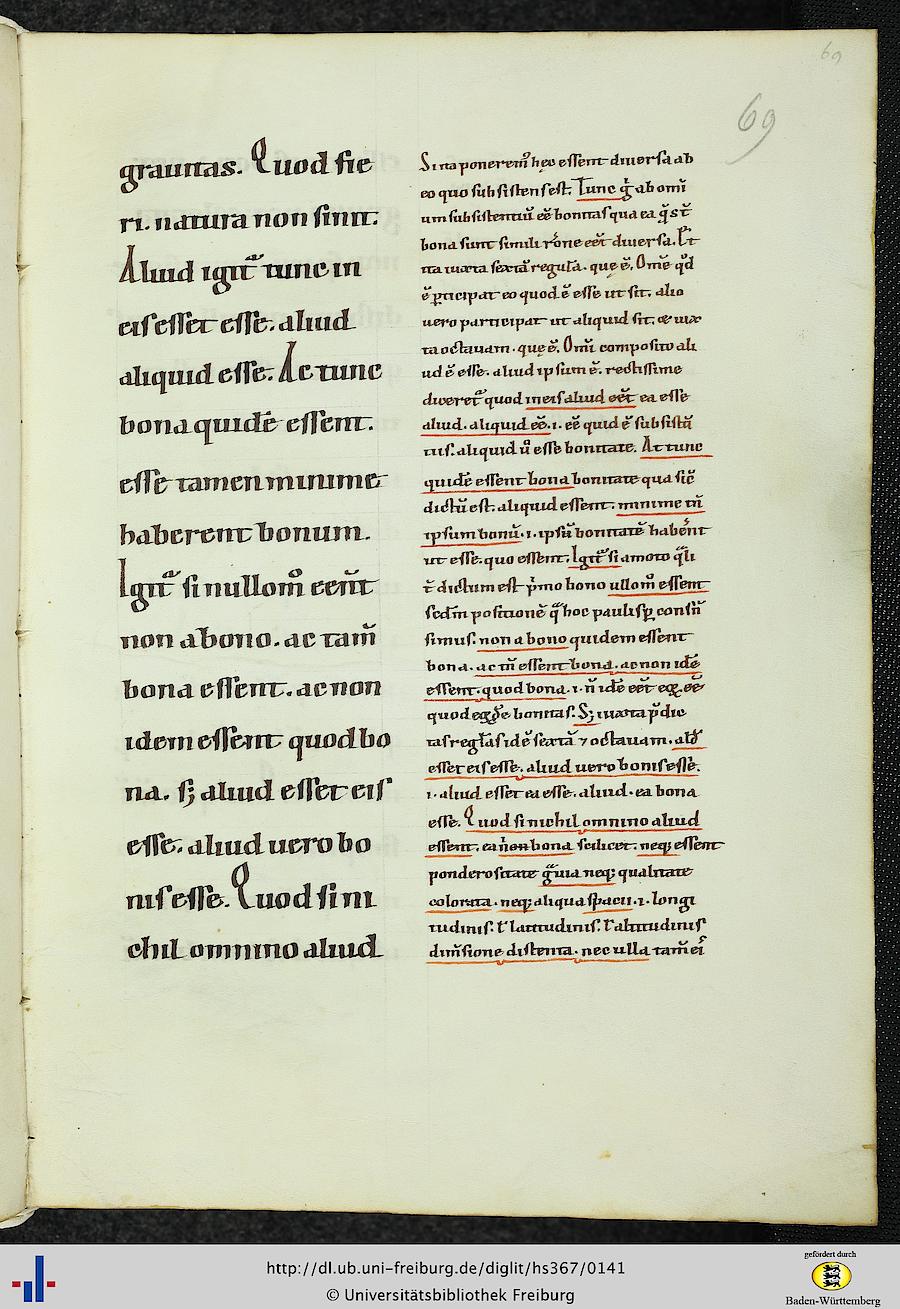 69
69
grauitas. Quod fie
ri. natura non sinit.
Aliud igitᷓ tunc in
eis esset esse. aliud
aliquid esse. Ac tunc
bona quidē essent.
esse tamen minime
haberent bonum.
Igitᷓ si nullom̊ eent̄
non a bono. ac tam̄
bona essent. ac non
idem essent quod bo
na. sꝫ aliud esset eis
esse. aliud uero bo
nis esse. Quod si ni
chil omnino aliud
Si ita poneremꝰ hęc essent diuersa ab
eo quo subsistens est. Tunc g̊ ab omī
um subsistentiū eē bonitas qua ea
bona sunt simili rōne eēt diuersa. Et
ita iuxta sextā regulā. quę ē. Omē qd̓
ē ꝑticipat eo quod ē esse ut sit. alio
uero participat ut aliquid sit. & iux
ta octauam. quę ē. Omī composito ali
ud ē esse. aliud ipsum ē. rectissime
diceretᷓ quod in eis aliud eēt ea esse
aliud. aliquid eē. .i. eē quid ē subsistē
tis. aliquid ū esse bonitate. At tunc
quidē essent bona bonitate qua sic̄
dictū est. aliquid essent. minime tn̄
ipsum bonū. .i. ipsū bonitatē habēnt
ut esse. quo essent. Igitᷓ si amoto
dictum est pͥmo bono ullom̊ essent
secdm̄ positionē qᷓ hoc paulisꝑ
simus. non a bono quidem essent
bona. ac tn̄ essent bona. ac non idē
essent. quod bona. .i. n̄ idē eēt eē
quod bonitas. Sꝫ iuxta p̄dic
tas reglās idē sextā ⁊ octauam. aliđ
esset eis esse. aliud uero bonis esse.
.i. aliud esset ea esse. aliud. ea bona
esse. Quod si nichil omnino aliud
essent. ea non bona scilicet. neqꝫ essent
ponderositate gᷓuia neqꝫ qualitate
colorata. neqꝫ aliqua spacii. .i. longi
tudinis. ł latitudinis. ł altitudinis
dim̄sione distenta. nec ulla tam̄ eiˢ
http://dl.ub.uni-freiburg.de/diglit/hs367/0141
© Universitätsbibliothek Freiburg
gefördert durch
Baden-Württemberg